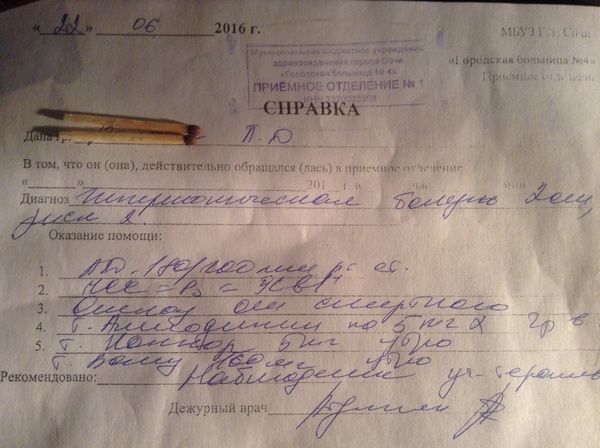 « 22 » 06 2016 г.
МБУЗ г. Сочи
«Городская больница №4»
Приемное отделение
Муниципальное бюджетное учреждение
здравоохранения города Сочи
«Городская больница № 4»
ПРИЁМНОЕ ОТДЕЛЕНИЕ № 1
СПРАВКА
Дана гр. П.Д
В том, что он (она), действительно обращался (лась) в приемное отделение
«______»__________201 г. в час. мин
Диагноз Гипертоническая болезнь 2 ст,
риск 2
Оказание помощи:
1. АД-180/100 мм рт ст.
2. ЧСС = Ps =
3. Отказ от
4. т. по 5 мг 2 р в
5. т. 5 мг утро
т. 160 мг утро
Рекомендовано: Наблюдение уч-терапев
Дежурный врач